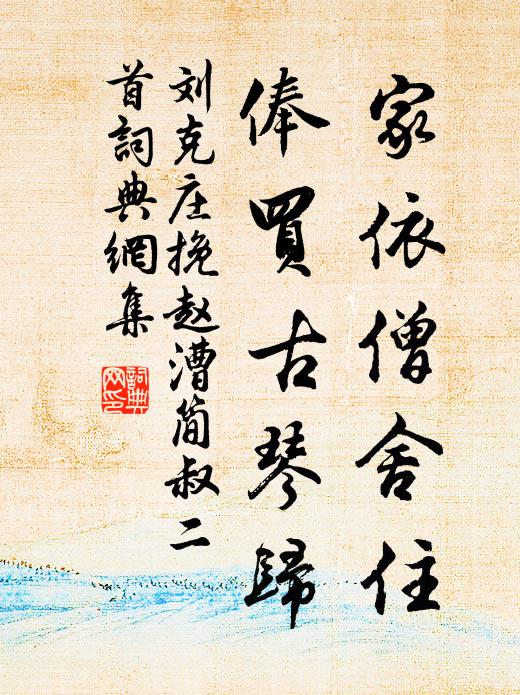 家依僧舍住
俸買古琴歸
刘克庄挽赵漕簡叔二
首詞典網集
詞典網印